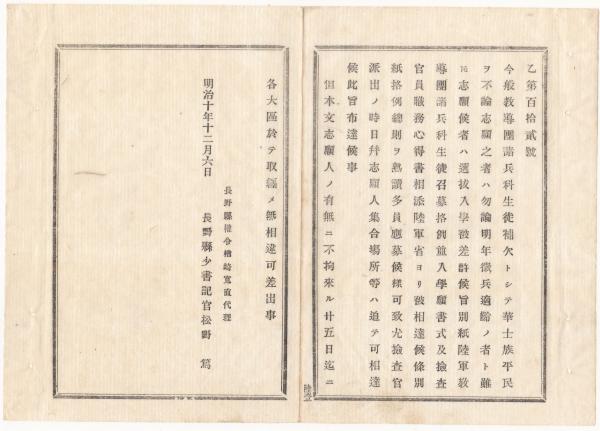 乙第百拾貳號
今般教導團諸兵科生徒補欠トシテ華士族平民
ヲ不論志願之者ハ勿論明年徴兵適齡ノ者ト雖
𪜈志願候者ハ選拔入學被差許候旨別紙陸軍教
導團諸兵科生徒召募格例並入學願書式及撿査
官員職務心得書相添陸軍省ヨリ被相達候條別
紙格例總則ヲ熟讀多員應募候様可致尤撿査官
派出ノ時日幷志願人集合場所等ハ追テ可相達
候此旨布達候事
但本文志願人ノ有無ニ不拘來ル廿五日迄ニ
各大區於テ取纒メ無相違可差出事
長野縣權令楢崎寛直代理
明治十年十二月六日 長野縣少書記官松野 篤